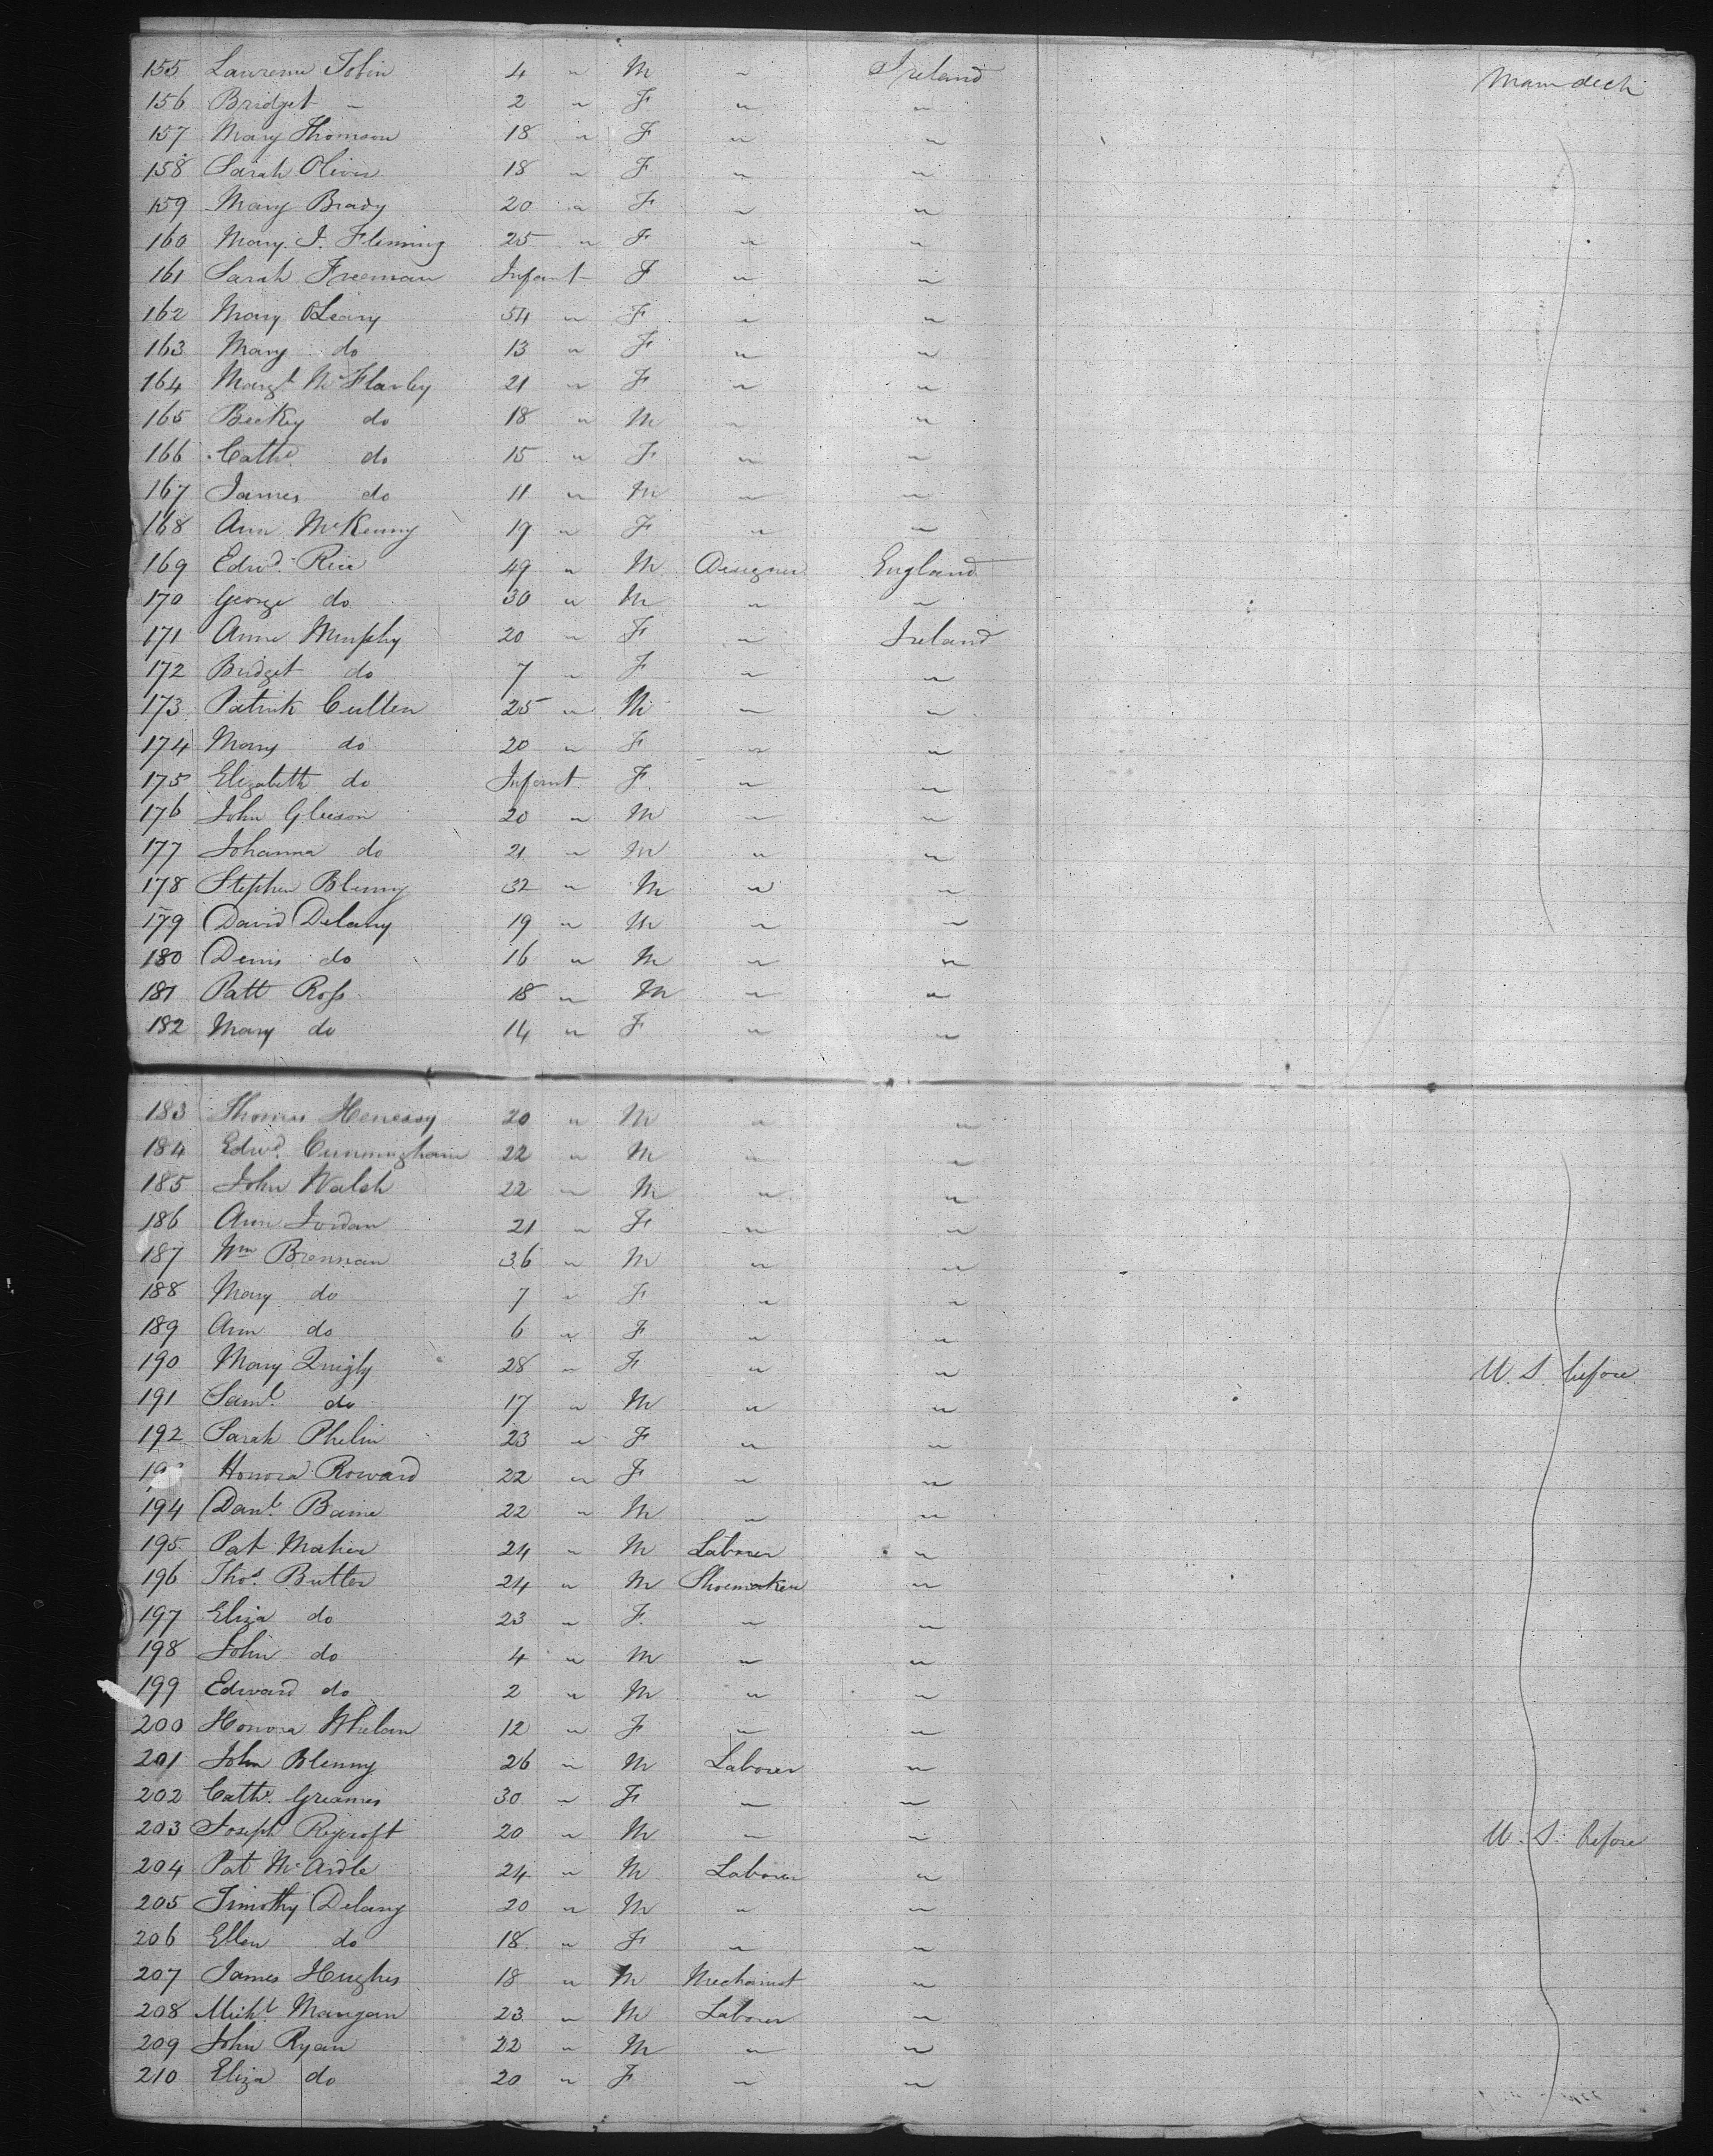 155 Lawrence Tobin 4 " M " Ireland Main deck
156 Bridget " 2 " F " "
157 Mary Thomson 18 " F " "
158 Sarah Oliver 18 " F " "
159 Mary Brady 20 " F " "
160 Mary J. Fleming 25 " F " "
161 Sarah Freeman Infant F " "
162 Mary OLeary 54 " F " "
163 Mary do 13 " F " "
164 Margt. 21 " F " "
165 Beckey do 18 " M " "
166 Cathe. do 15 " F " "
167 James do 11 " M " "
168 Ann McKenny 19 " F " "
169 Edwd. Rice 49 " M Designer England
170 George do 30 " M " "
171 Anne Murphy 20 " F " Ireland
172 Bridget do 7 " F " "
173 Patrick Cullen 25 " M " "
174 Mary do 20 " F " "
175 Elizabeth do Infant F. " "
176 John Gleeson 20 " M " "
177 Johanna do 21 " M " "
178 Stephen Blenny 32 " M " "
179 David Delany 19 " M " "
180 Denis do 16 " M " "
181 Patt Ross 18 " M " "
182 Mary do 14 " F " "
183 Thomas Henessy 20 " M " "
184 Edwd. Cunningham 22 " M " "
185 John Walsh 22 " M " "
186 Ann Jordan 21 " F " "
187 Wm Brennan 36 " M " "
188 Mary do 7 " F " "
189 Ann do 6 " F " "
190 Mary Quigly 28 " F " " U. S. before
191 Saml. do 17 " M " "
192 Sarah Phelin 23 " F " "
Honora Roward 22 " F " "
194 Danl. 22 " M " "
195 Pat Maher 24 " M Laborer "
196 Thos. Butler 24 " M Shoemaker "
197 Eliza do 23 " F. " "
198 John do 4 " M " "
199 Edward do 2 " M " "
200 Honora Whelan 12 " F " "
201 John Blenny 26 " M Laborer "
202 Cathe. 30 " F " "
203 Joseph Rycroft 20 " M " " U. S. before
204 Pat McArdle 24 " M Laborer "
205 Timothy Delany 20 " M " "
206 Ellen do 18 " F " "
207 James Hughes 18 " M Mechanist "
208 Michl. Mangan 23 " M Laborer "
209 John Ryan 22 " M " "
210 Eliza do 20 " F " "